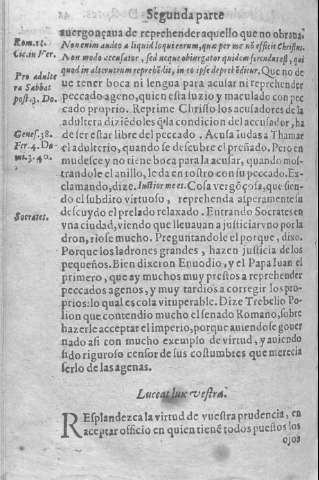 Segunda parte
auergonçaua de reprehender aquello que no obraua.
Rom. 15.
Non enim audeo a liquid loqui eorum, quæ per me nõ efficit Christus.
Cic. in Ver.
Non modo accusator, sed neque obiurgator quidem ferendus est, qui
quod in alterutrem reprehẽdit, in eo ipse deprehẽditur. Que no de
Pro adultera Sabbat post. 3. Do.
ue tener boca ni lengua para acusar ni reprehender
peccado ageno, quien esta suzio y maculado con pec
cado proprio. Reprime Christo los acusadores de la
adultera diziẽdoles q̃ la condicion del accusador, ha
Genes. 38.
de ser estar libre del peccado. Acusa iudas a Thamar
Fer. 4. Domi. 3. 40.
el adulterio, quando se descubre el preñado. Pero en
mudesce y no tiene boca para la acusar, quando mos-
trandole el anillo, le da en rostro con su peccado. Ex-
clamando, dize. Iustior me est. Cosa vergõçosa, que sien-
do el subdito virtuoso, reprehenda asperamente su
descuydo el prelado relaxado. Entrando Socrates en
Socrates.
vna ciudad, viendo que lleuauan a justiciar vno por la
dron, riose mucho. Preguntandole el porque, dixo.
Porque los ladrones grandes, hazen justicia de los
pequeños. Bien dixeron Enuodio, y el Papa Iuan el
primero, que ay muchos muy prestos a reprehender
peccados agenos, y muy tardios a corregir los pro-
prios: lo qual es cola vituperable. Dize Trebelio Po-
lion que contendio mucho el senado Romano, sobre
hazerle acceptar el imperio, porque auiendose gouer
nado asi con mucho exemplo de virtud, y auiendo
sido riguroso censor de sus costumbres que merecia
serlo de las agenas.
Luceat lux vestra.
REsplandezca la virtud de vuestra prudencia, en
aceptar officio en quien tienẽ todos puestos los
ojos